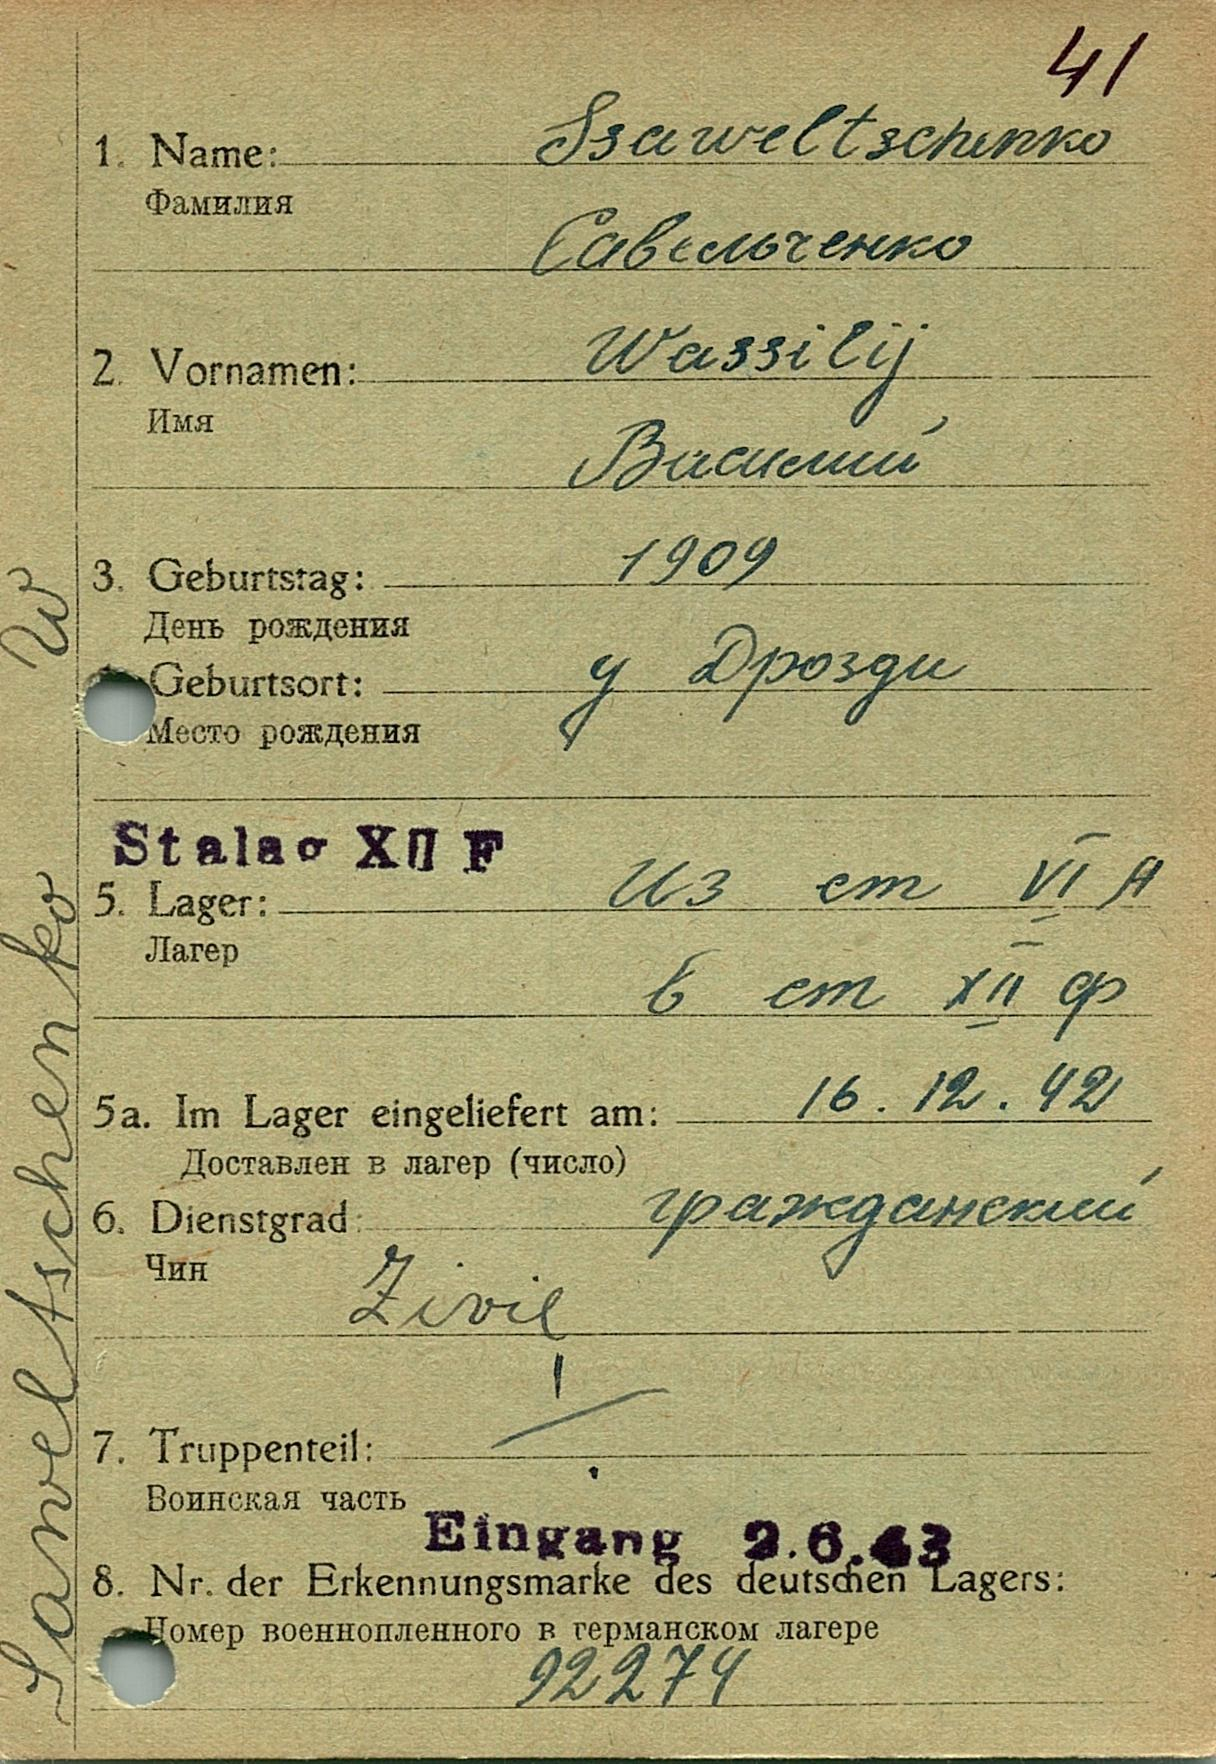 41
1. Name: Ssaweltschenko
Фамилия
Савельченко
2. Vornamen: Wassilij
Имя
Василий
3. Geburtstag: 1909
День рождения
Geburtsort: у Дрозди
Место рождения
Stalag XII F
5. Lager: Из ст VI А
Лагер
в ст XII Ф
5a. Im Lager eingeliefert am: 16. 12. 42
Доставлен в лагер (число)
6. Dienstgrad: гражданский
Чин
Zivil
7. Truppenteil:
Воинская часть
Eingang 2.6.43
8. Nr. der Erkennungsmarke des deutschen Lagers:
Номер военнопленного в германском лагере
92274
Saweltschenko W